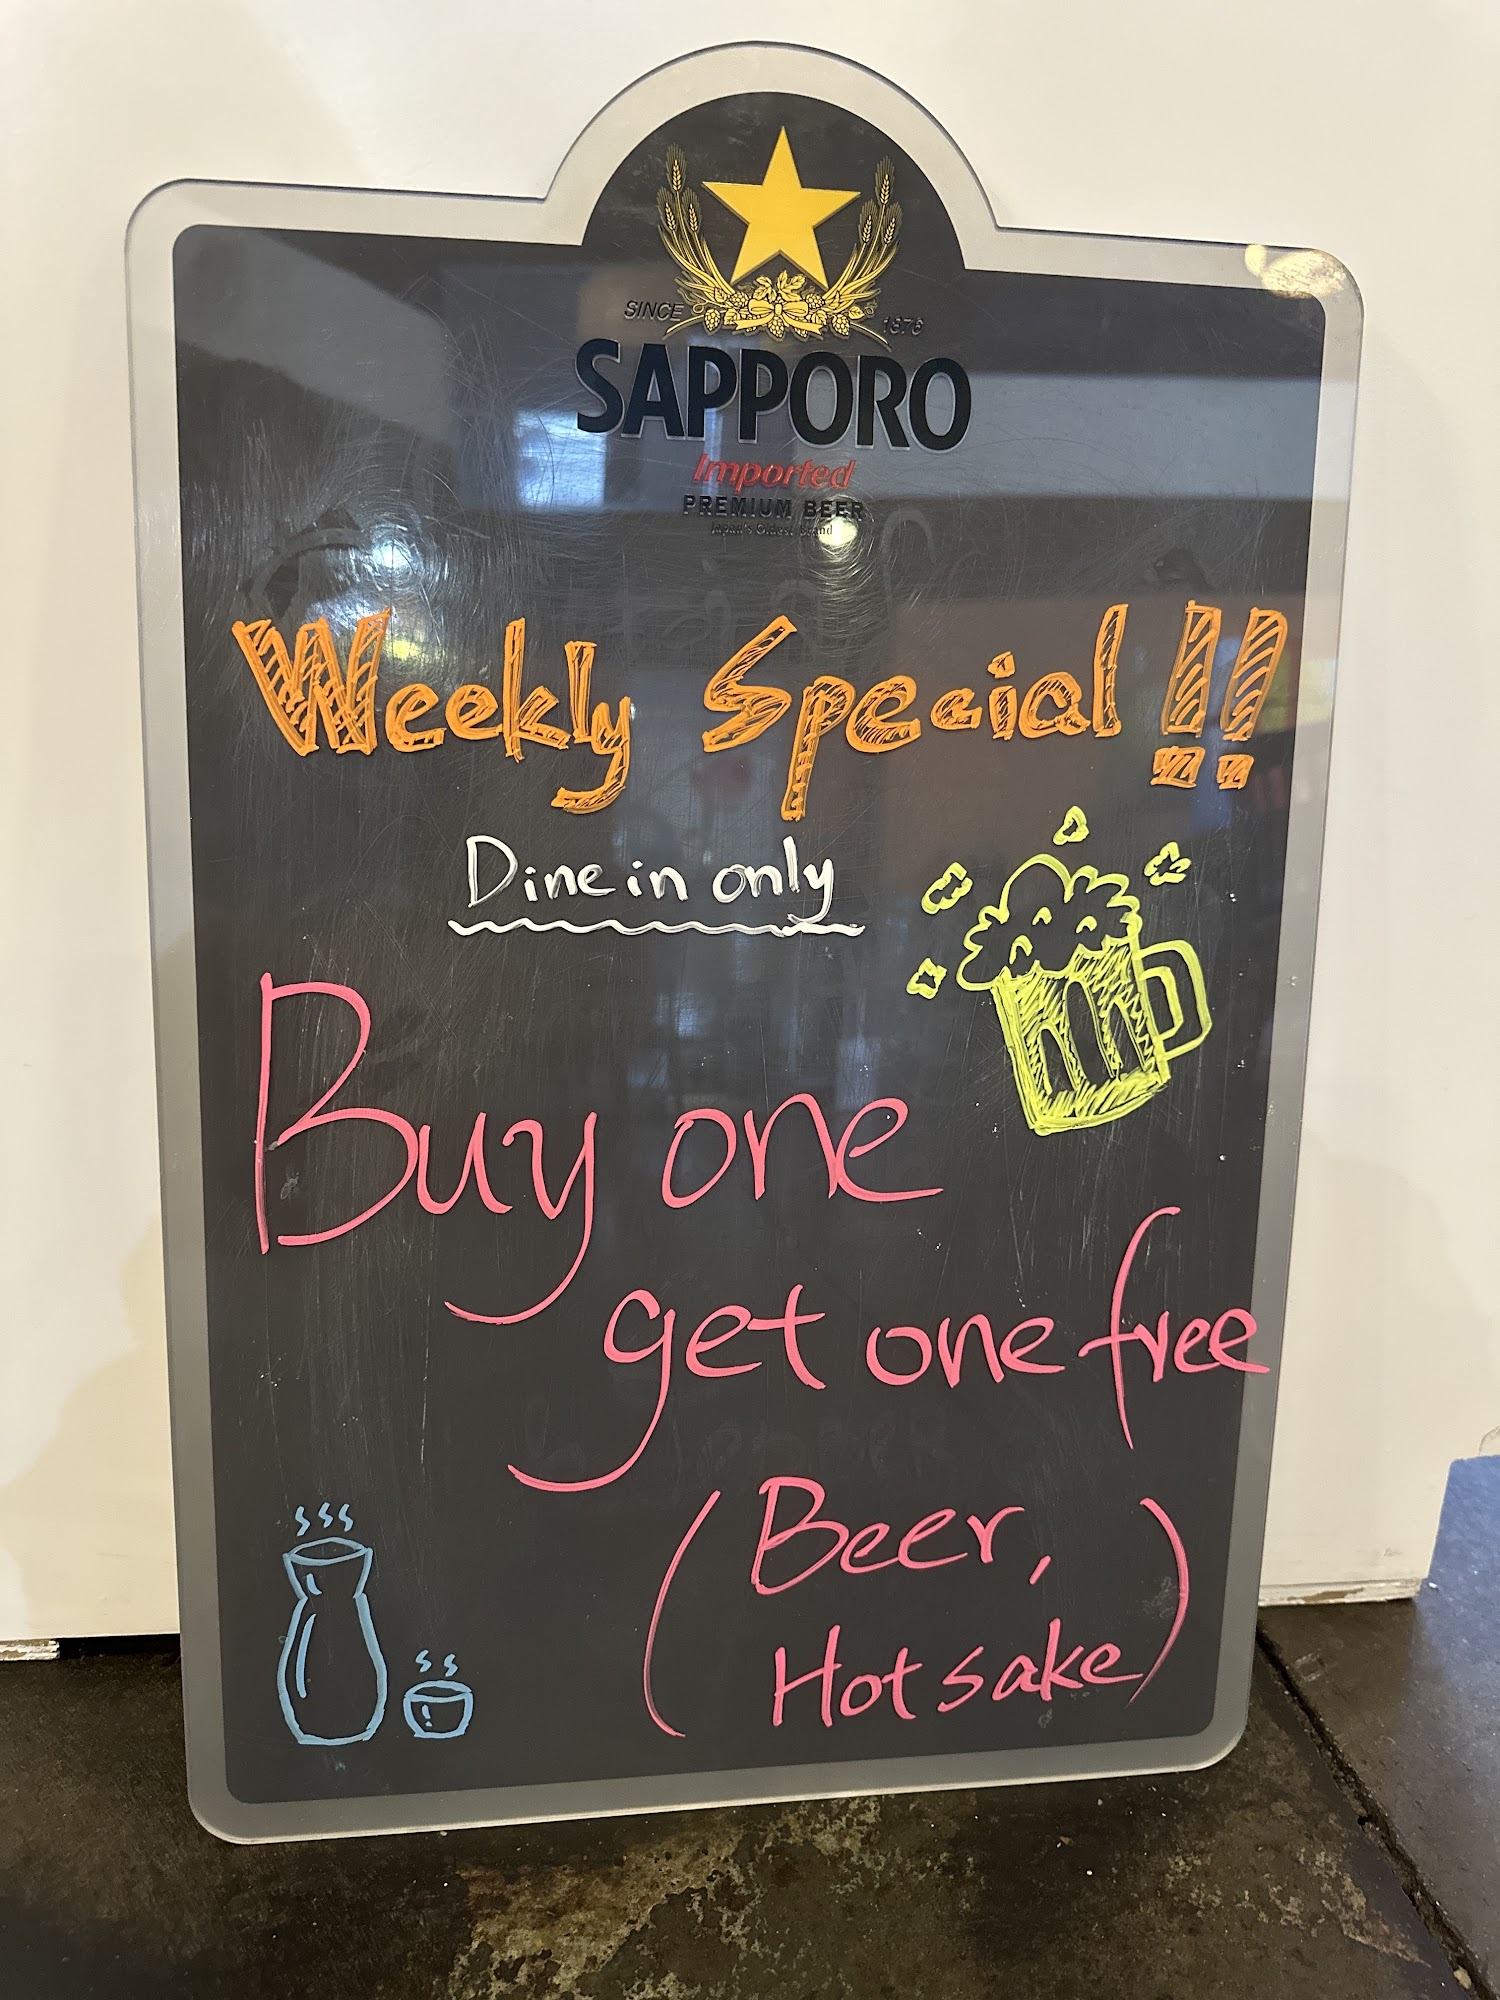 SINCE 1876
SAPPORO
Imported
PREMIUM BEER
Japan's Oldest Brand
Weekly Special!!
Dine in only
Buy one
get one free
(Beer,
Hot sake)